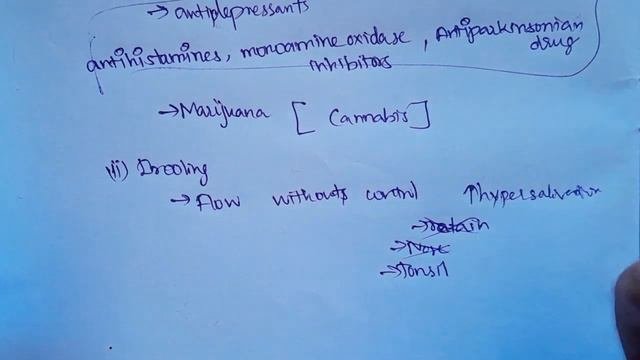 → antidepressants
antihistamines, monoamine oxidase, Antiparkinsonian
inhibitors drug
→ Marijuana [Cannabis]
Drooling
→ Flow without control ↑hypersalivation
→ retain
→ Not
→ Tonsil